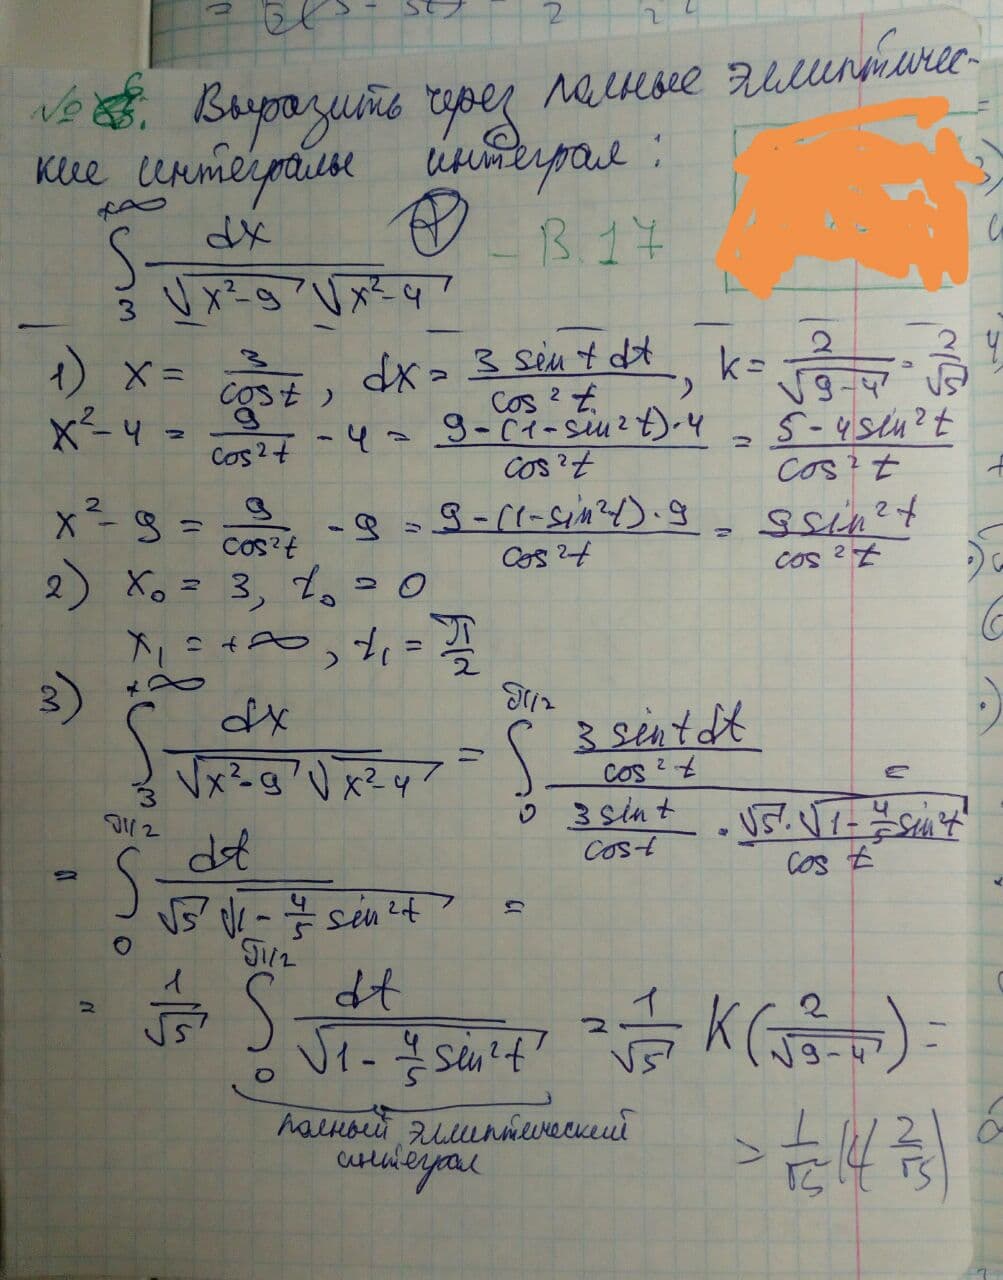 № 6. Выразить через полные эллиптичес-
кие интегралы интеграл:
∫_3^{+∞} dx / (√(x²-9) √(x²-4)) - В.17
1) x = 3/cos t, dx = 3 sin t dt / cos² t, k = 2/√(9-4) = 2/√5
x²-4 = 9/cos²t - 4 = (9-(1-sin²t)·4)/cos²t = (5-4sin²t)/cos²t
x²-9 = 9/cos²t - 9 = (9-(1-sin²t)·9)/cos²t = 9sin²t/cos²t
2) x₀ = 3, t₀ = 0
x₁ = +∞, t₁ = π/2
3) ∫_3^{+∞} dx / (√(x²-9) √(x²-4)) = ∫_0^{π/2} (3 sin t dt / cos² t) / ((3 sin t / cos t) · (√5·√(1-4/5 sin²t) / cos t)) =
= ∫_0^{π/2} dt / (√5 √(1-4/5 sin²t)) =
= 1/√5 ∫_0^{π/2} dt / √(1-4/5 sin²t) = 1/√5 K(2/√(9-4)) =
полный эллиптический
интеграл
= 1/√5 K(2/√5)